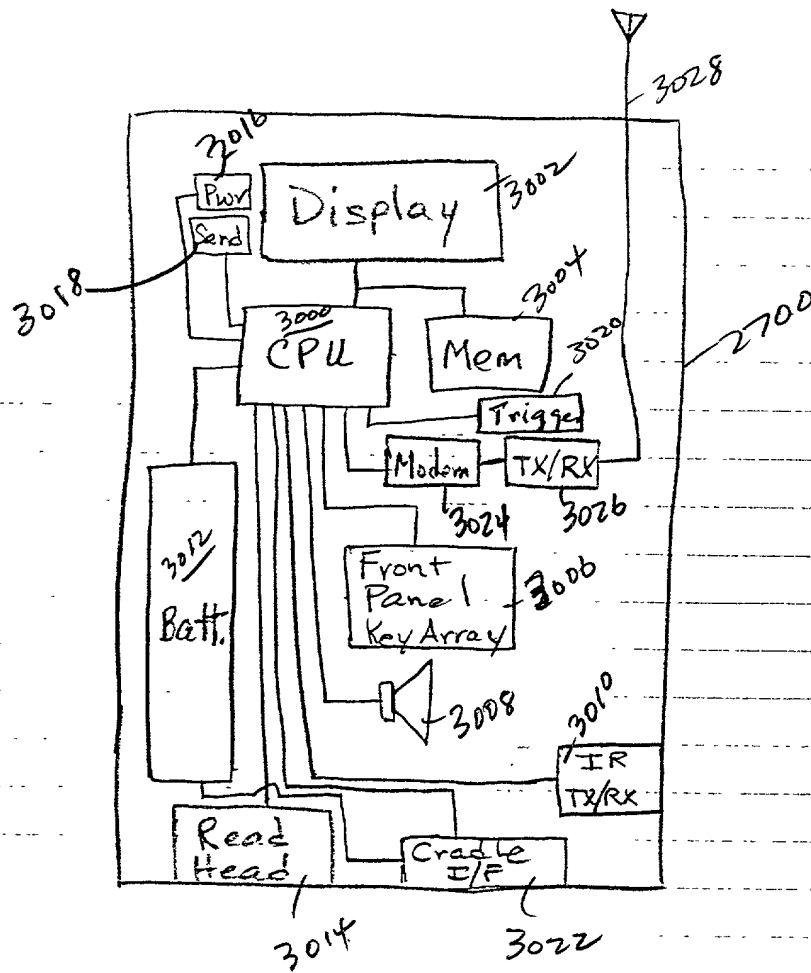 3028
3016
Pwr
Display
3002
Send
3018
3000
CPU
3004
Mem
3020
2700
Trigger
Modem
TX/RX
3024
3026
3012
Batt.
Front
Panel
Key Array
3006
3008
3010
IR
TX/RX
Read
Head
Cradle
I/F
3014
3022